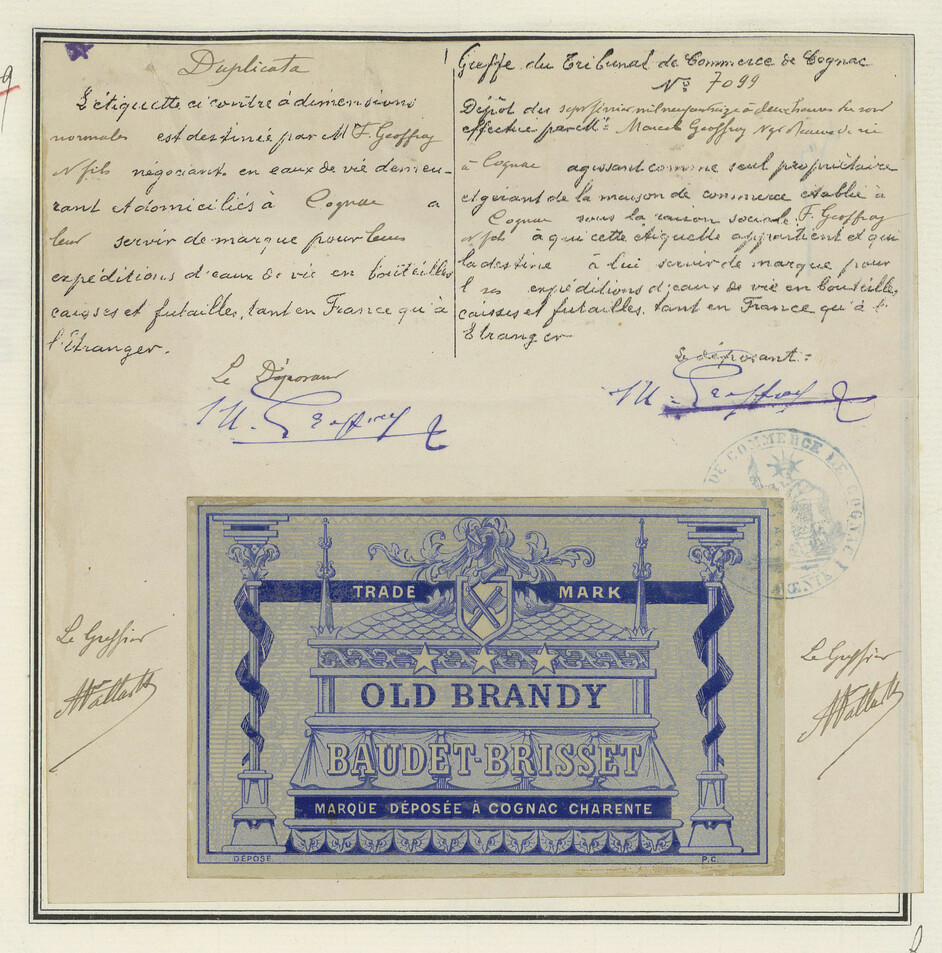 Duplicata
L'étiquette ci contre à dimensions
normales est destinée par M F. Geoffroy
& fils négociants en eaux de vie demeu-
rant & domiciliés à Cognac a
leur servir de marque pour leurs
expéditions d'eaux de vie en boûteilles
caisses et futailles, tant en France qu'à
l'Etranger.
Le Déposant
M. Geoffroy
Greffe du Tribunal de Commerce de Cognac
No 7099
Dépôt du sept février mil neuf cent
effectué par M. Marcel Geoffroy
à Cognac agissant comme seul propriétaire
et gérant de la maison de commerce établie à
Cognac sous la raison sociale F. Geoffroy
& fils à qui cette étiquette appartient et qui
la destine à lui servir de marque pour
ses expéditions d'eaux de vie en bouteilles
caisses et futailles, tant en France qu'à l'
Etranger
Le déposant:
M. Geoffroy
DE COMMERCE DE COGNAC
Le Greffier
Le Greffier
TRADE MARK
OLD BRANDY
BAUDET-BRISSET
MARQUE DÉPOSÉE À COGNAC CHARENTE
DÉPOSÉ
P.C.